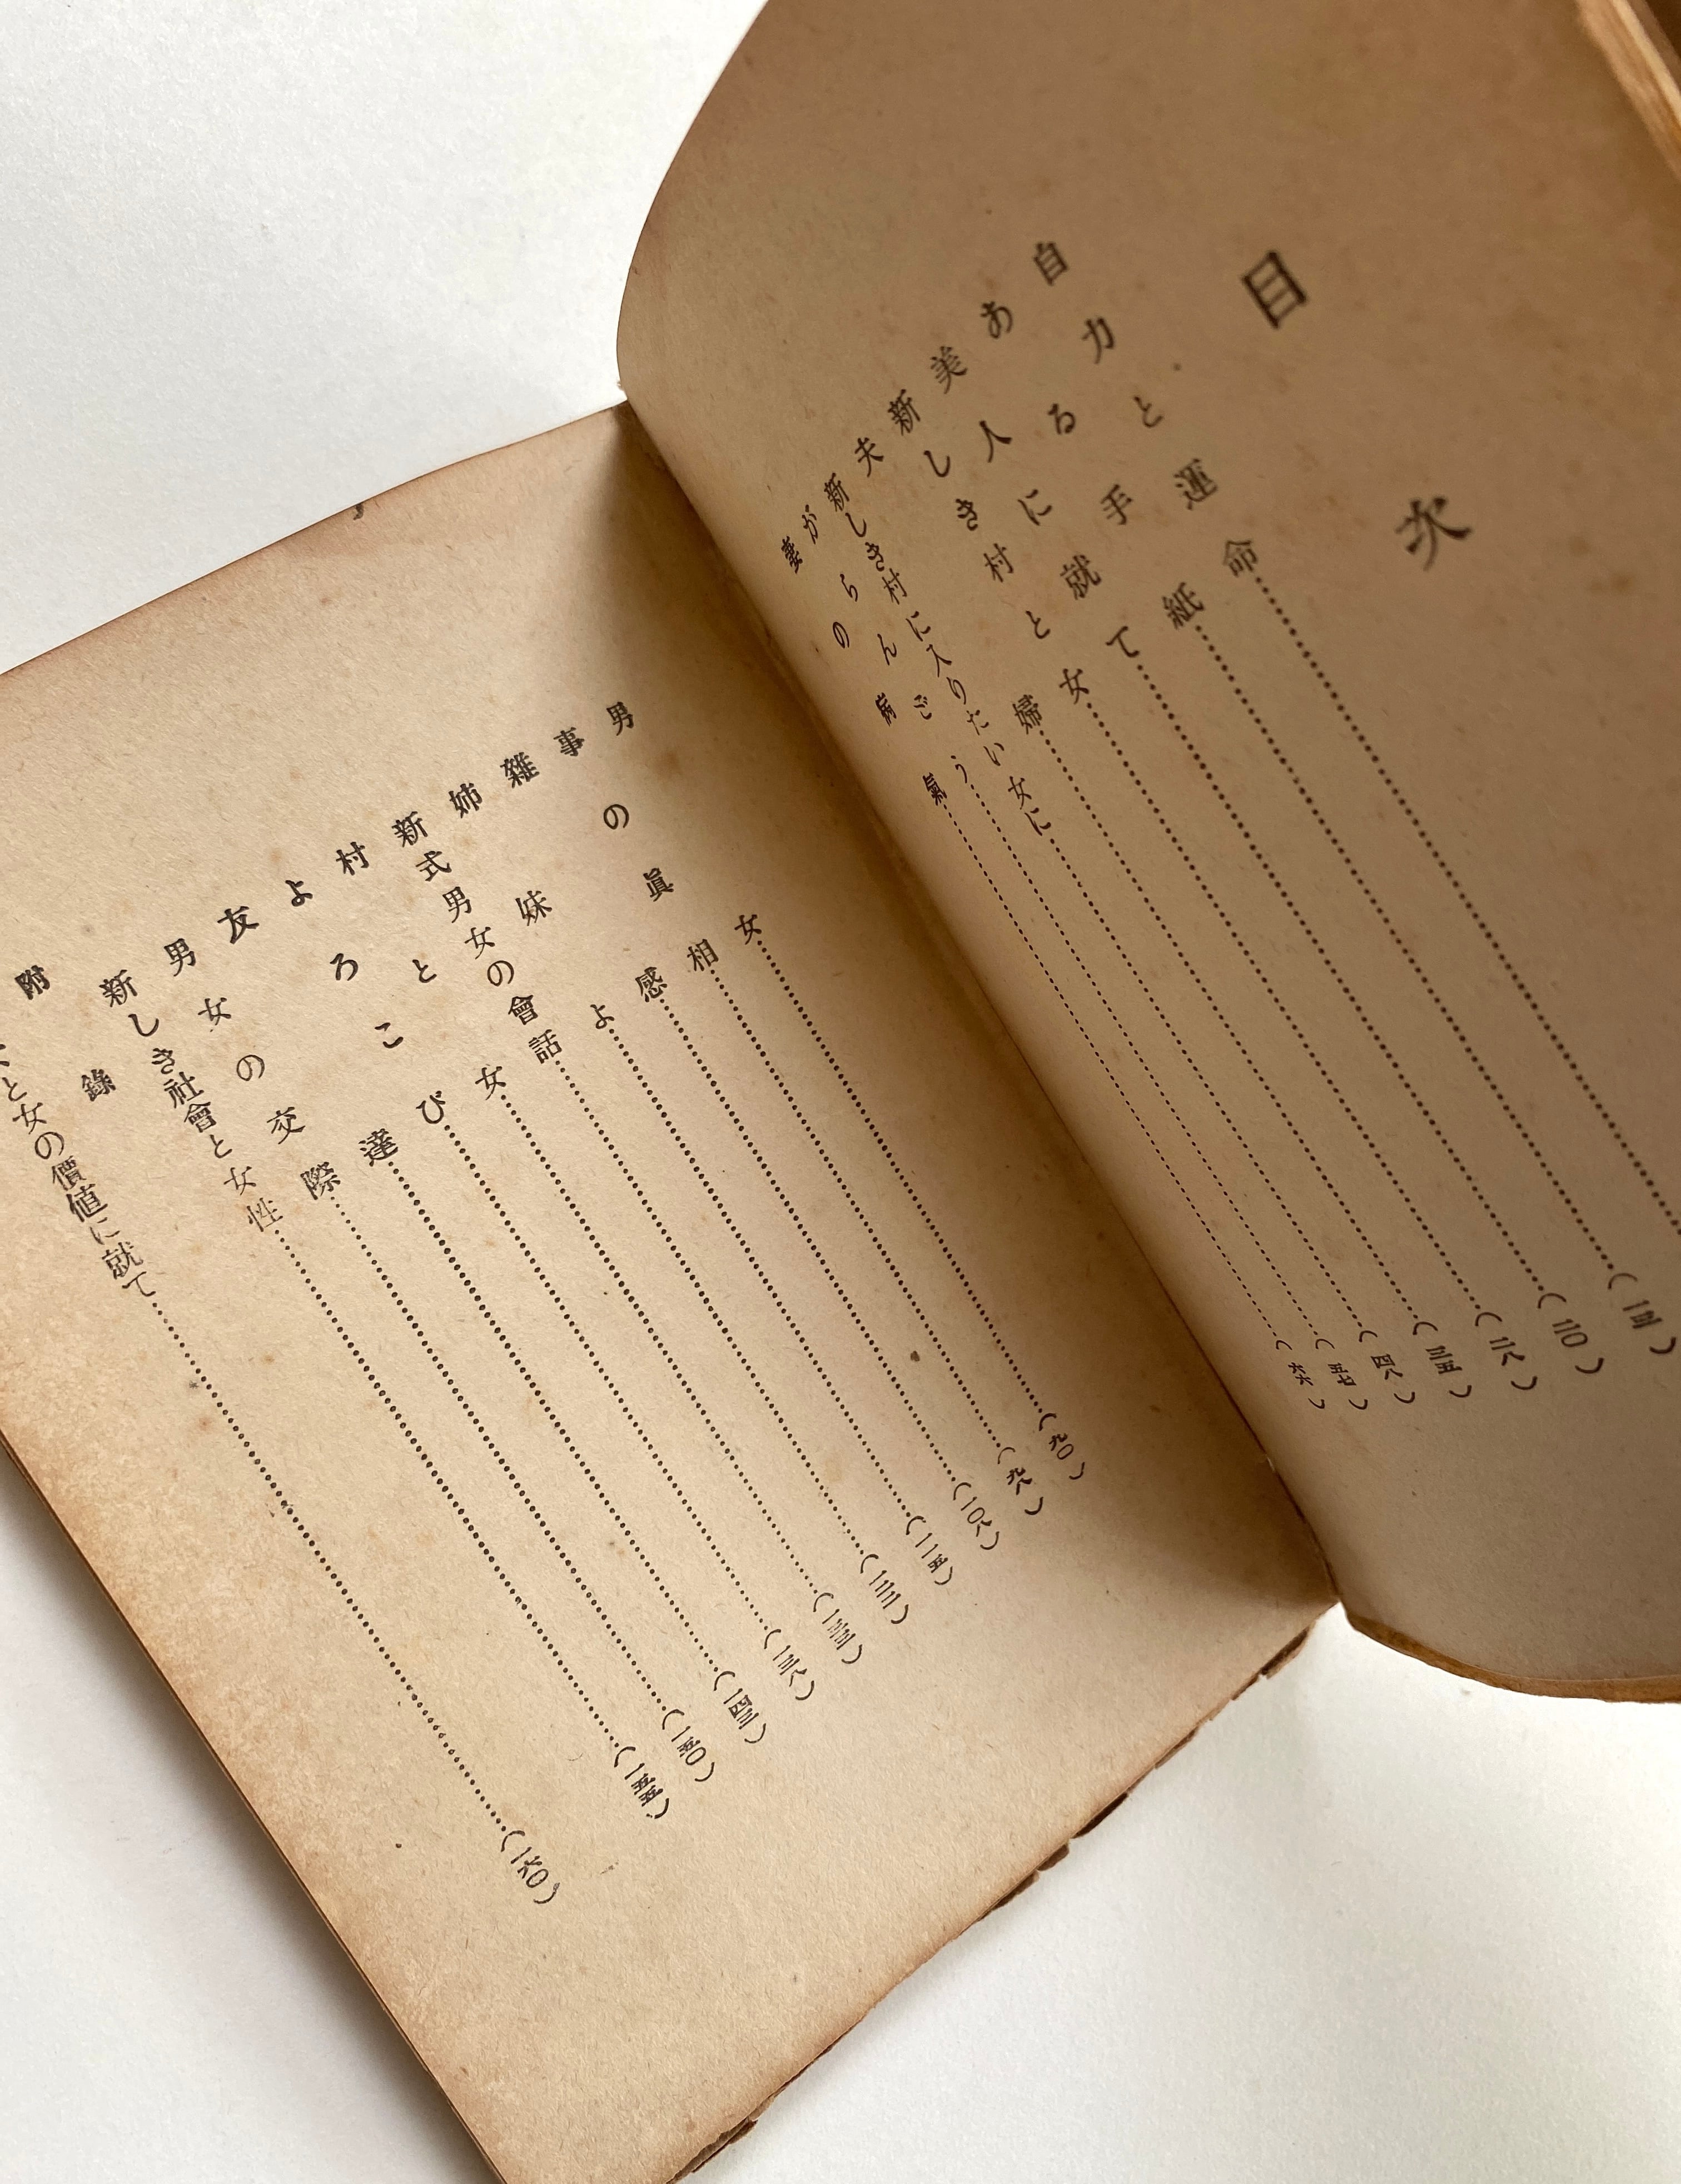 目次
自力と運命
ある手紙(一三)
美人に就て(二〇)
新しき村と女(二八)
夫婦(三五)
新しき村に入りたい女に(四八)
がらんごう(五七)
妻の病氣(六六)
男女(九〇)
事の眞相(九八)
雜感(一〇八)
姉妹よ(一一五)
新式男女の會話(一二三)
村と女(一三三)
よろこび(一三八)
友達(一四三)
男女の交際(一五〇)
新しき社會と女性(一五五)
附錄
と女の價値に就て(一六〇)